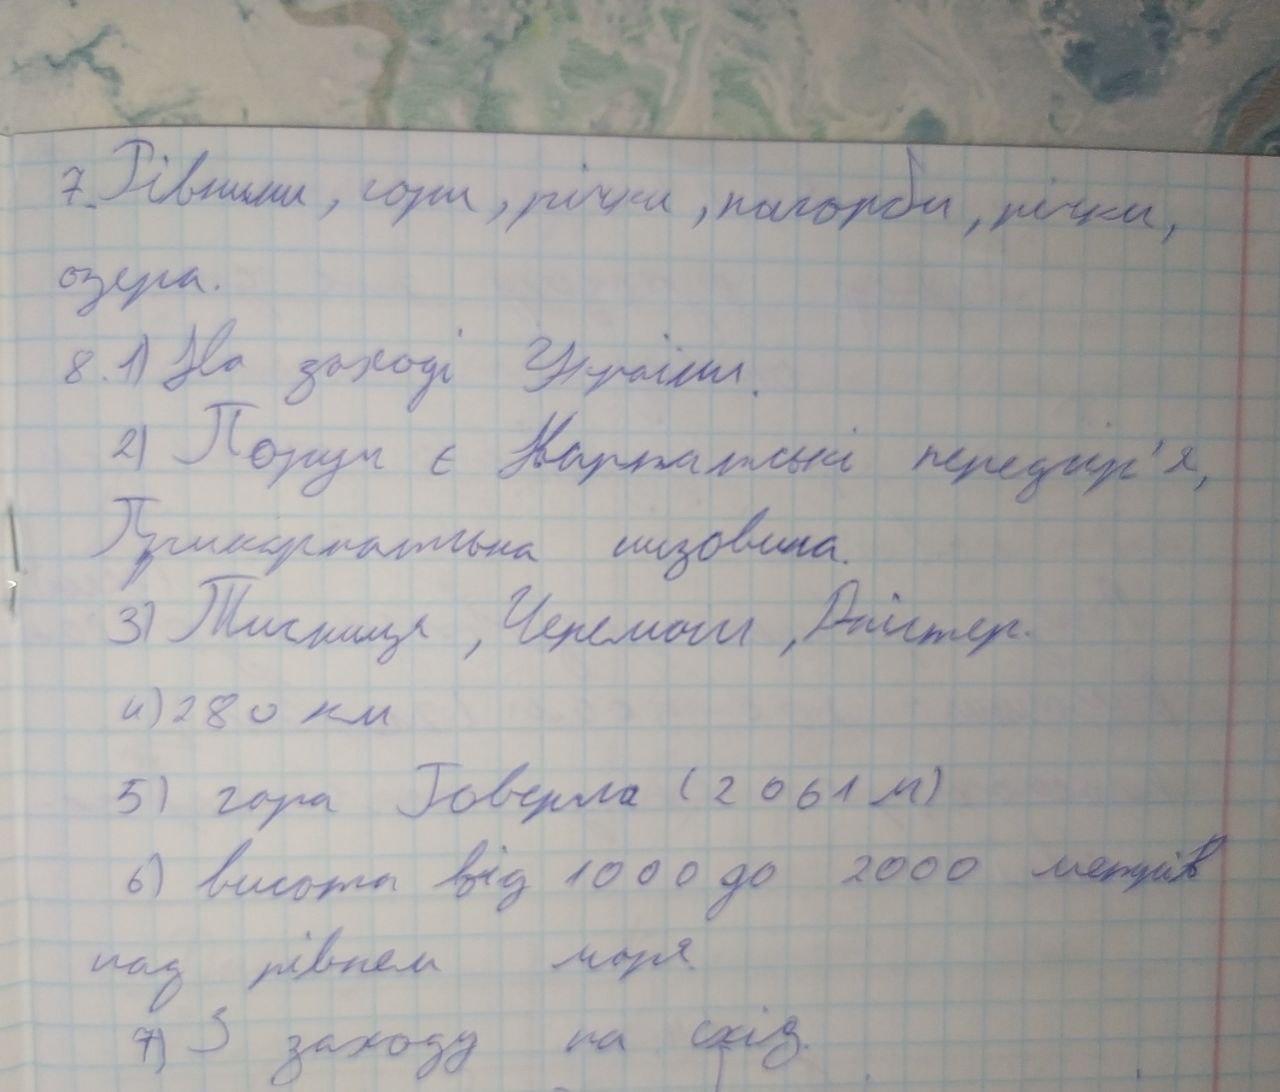 7. Рівнини, гори, річки, пагорби, річки,
озера.
8. 1) На заході України.
2) Поруч є Карпатські передгір'я,
Прикарпатська низовина.
3) Тисниця, Черемош, Дністер.
4) 280 км
5) гора Говерла (2061 м)
6) висота від 1000 до 2000 метрів
над рівнем моря
7) З заходу на схід.